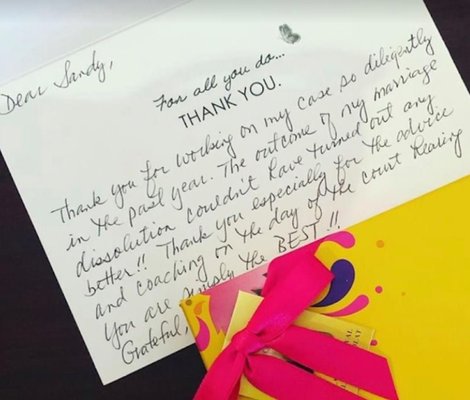 Dear Sandy,
For all you do...
THANK YOU.
Thank you for working on my case so diligently
in the past year. The outcome of my marriage
dissolution couldn't have turned out any
better!! Thank you especially for the advice
and coaching on the day of the court hearing
You are simply the BEST!!
Grateful,